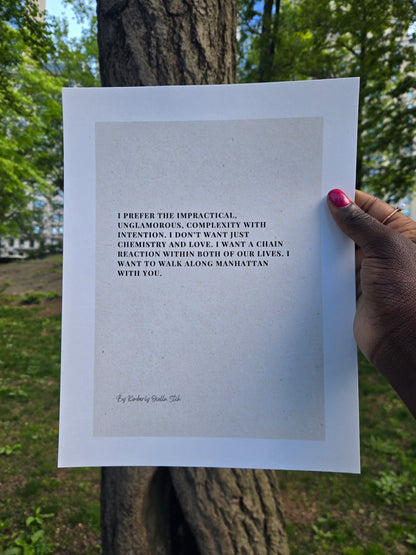 I PREFER THE IMPRACTICAL,
UNGLAMOROUS, COMPLEXITY WITH
INTENTION. I DON'T WANT JUST
CHEMISTRY AND LOVE. I WANT A CHAIN
REACTION WITHIN BOTH OF OUR LIVES. I
WANT TO WALK ALONG MANHATTAN
WITH YOU.
By Kimberly